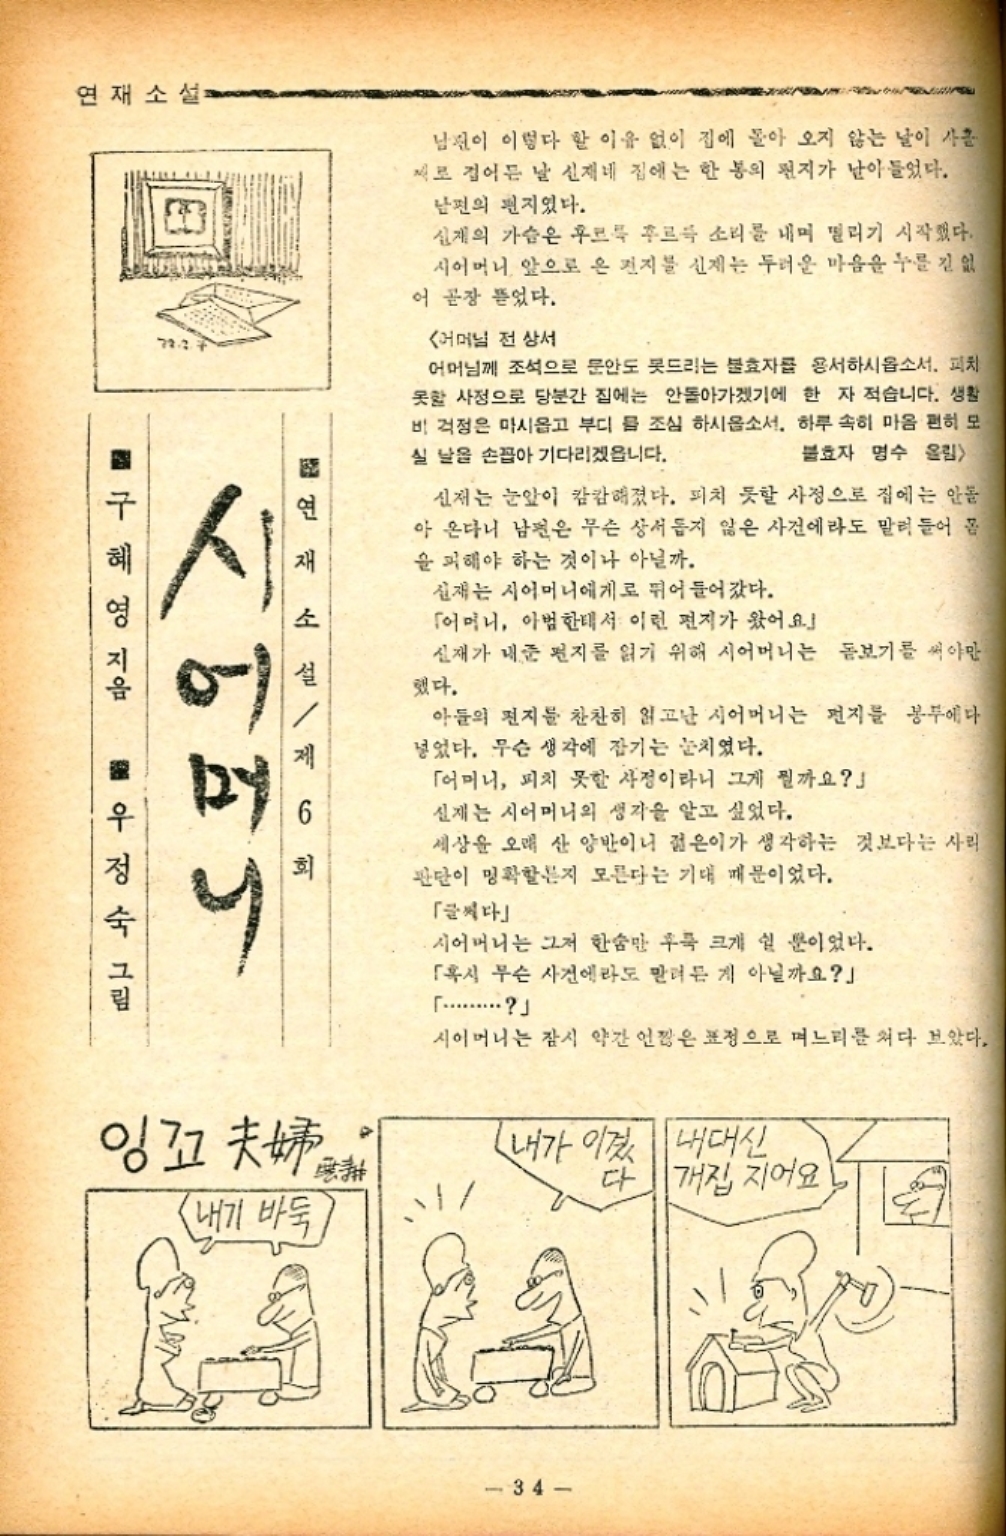 연재소설
72.2.
■연재소설/제6회
시어머니
■구혜영 지음 ■우정숙 그림
남편이 이렇다 할 이유 없이 집에 돌아 오지 않는 날이 사흘
째로 접어든 날 신재네 집에는 한 통의 편지가 날아들었다.
남편의 편지였다.
신재의 가슴은 후르륵 후르륵 소리를 내며 떨리기 시작했다.
시어머니 앞으로 온 편지를 신재는 두려운 마음을 누를 길 없
어 곧장 뜯었다.
〈어머님 전 상서
어머님께 조석으로 문안도 못드리는 불효자를 용서하시옵소서. 피치
못할 사정으로 당분간 집에는 안돌아가겠기에 한 자 적습니다. 생활
비 걱정은 마시옵고 부디 몸 조심 하시옵소서. 하루 속히 마음 편히 모
실 날을 손꼽아 기다리겠읍니다. 불효자 명수 올림〉
신재는 눈앞이 캄캄해졌다. 피치 못할 사정으로 집에는 안돌
아 온다니 남편은 무슨 상서롭지 않은 사건에라도 말려들어 몸
을 피해야 하는 것이나 아닐까.
신재는 시어머니에게로 뛰어들어갔다.
「어머니, 아범한테서 이런 편지가 왔어요」
신재가 내준 편지를 읽기 위해 시어머니는 돋보기를 써야만
했다.
아들의 편지를 찬찬히 읽고난 시어머니는 편지를 봉투에다
넣었다. 무슨 생각에 잠기는 눈치였다.
「어머니, 피치 못할 사정이라니 그게 뭘까요?」
신재는 시어머니의 생각을 알고 싶었다.
세상을 오래 산 양반이니 젊은이가 생각하는 것보다는 사리
판단이 명확할른지 모른다는 기대 때문이었다.
「글쎄다」
시어머니는 그저 한숨만 후욱 크게 쉴 뿐이었다.
「혹시 무슨 사건에라도 말려든 게 아닐까요?」
「………?」
시어머니는 잠시 약간 언짢은 표정으로 며느리를 쳐다 보았다.
잉꼬 夫婦
내기 바둑
내가 이겼
다
내대신
개집 지어요
— 34 —